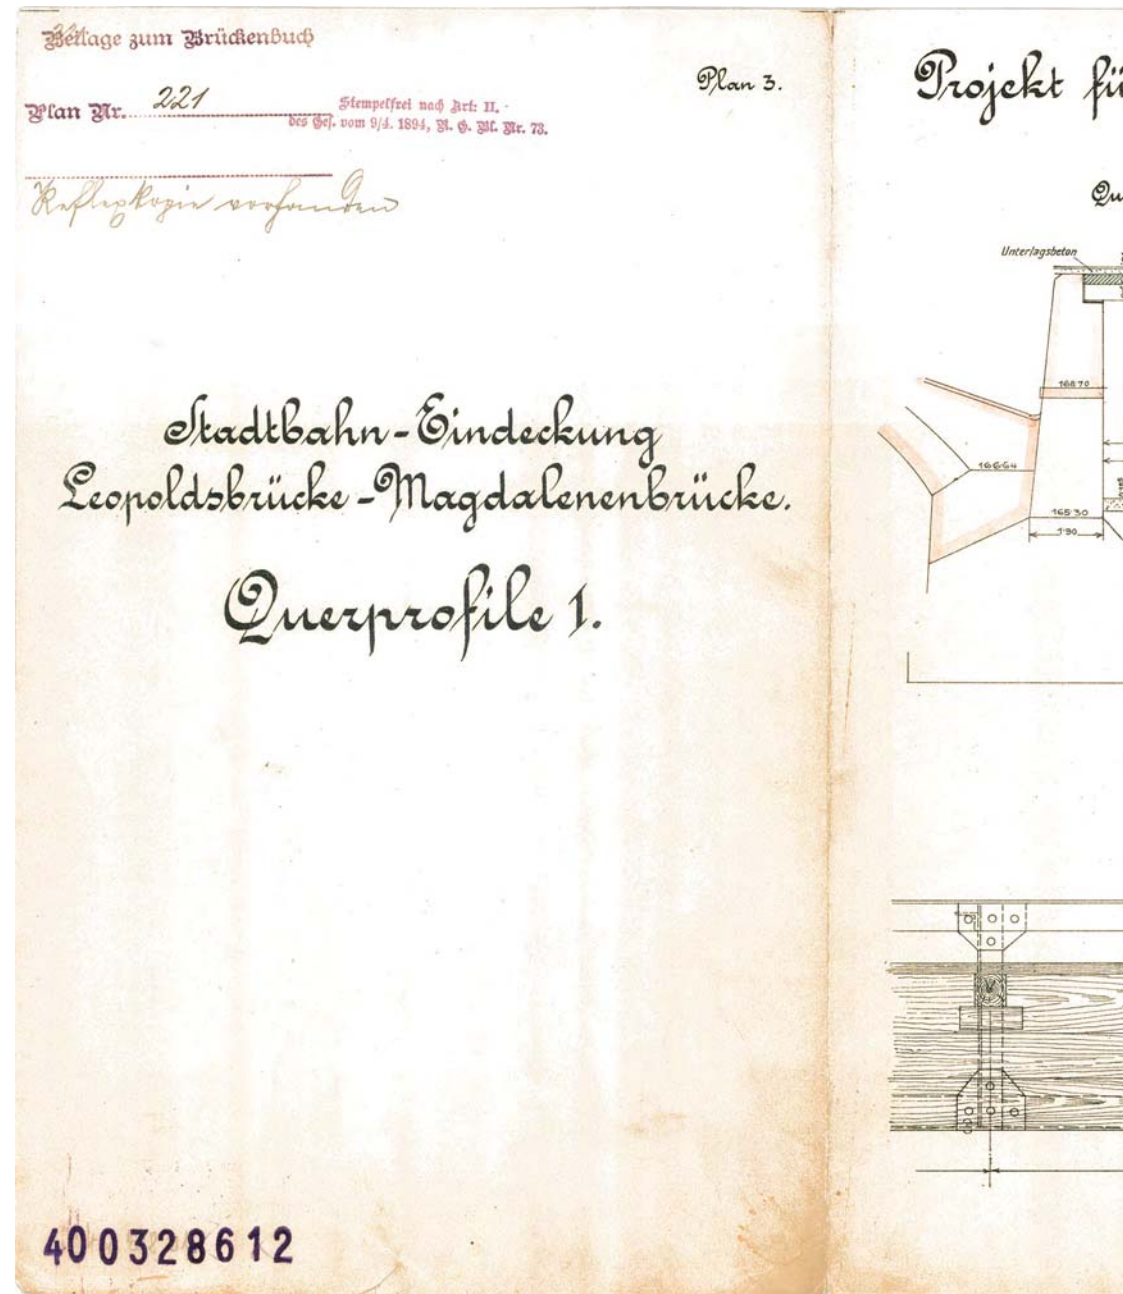 Beilage zum Brückenbuch
Plan Nr. 221
Stempelfrei nach Art: II.
des Ges. vom 9/4. 1894, R. G. Bl. Nr. 73.
Reflexkopie vorhanden
Plan 3.
Stadtbahn-Eindeckung
Leopoldsbrücke-Magdalenenbrücke.
Querprofile 1.
400328612
Projekt fü
Qu
Unterlagsbeton
168.70
166.64
165.30
1.90